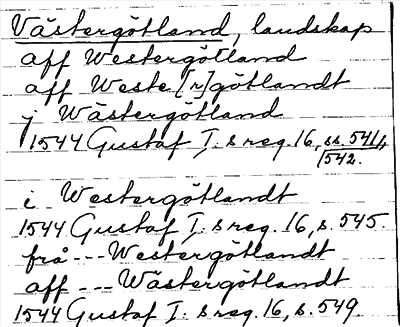 Västergötland, landskap
aff Westergötland
aff Weste[r]götlandt
j Wästergötland
1544 Gustaf I:s reg. 16, ss. 541,
542.
i Westergötlandt
1544 Gustaf I:s reg. 16, s. 545.
frå --- Westergötlandt
aff --- Wästergötlandt
1544 Gustaf I:s reg. 16, s. 549.